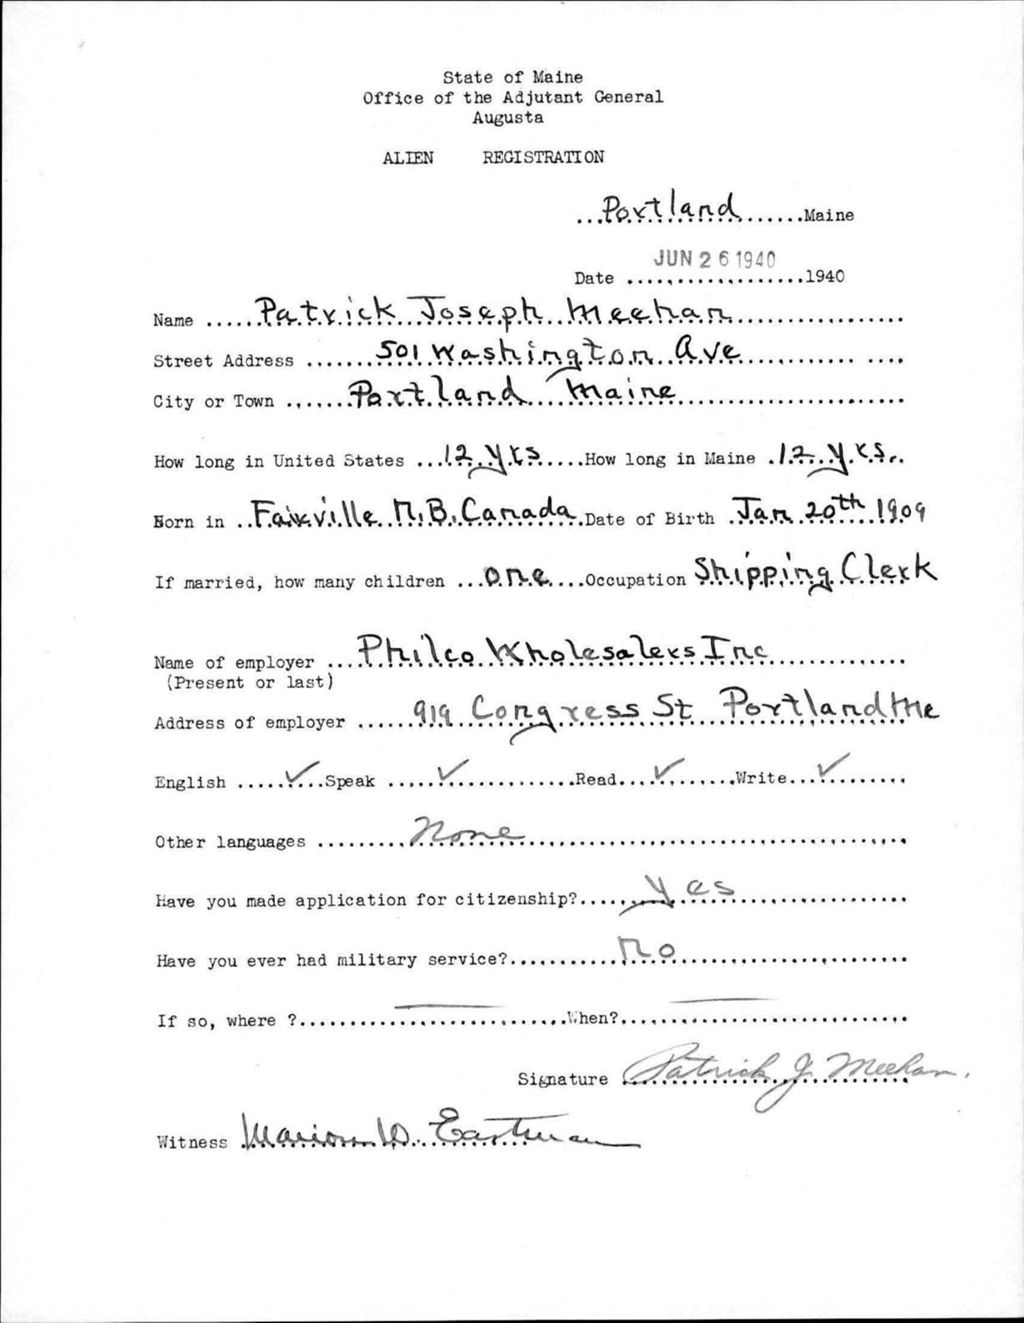 State of Maine
Office of the Adjutant General
Augusta
ALIEN REGISTRATION
...Portland.......Maine
JUN 26 1940
Date ..................1940
Name ......Patrick Joseph Meehan..................
Street Address .......501 Washington Ave................ ....
City or Town .......Portland Maine........................
How long in United States ...12 yrs.....How long in Maine .12 yrs..
Born in ..Fairville N.B. Canada.Date of Birth .Jan 20th 1909
If married, how many children ...one....Occupation Shipping Clerk
Name of employer ....Philco Wholesalers Inc..............
(Present or last)
Address of employer ......919 Congress St Portland Me
English .....✓...Speak .....✓............Read...✓.......Write...✓........
Other languages .........None......................................
Have you made application for citizenship?......Yes..................
Have you ever had military service?...........no.......................
If so, where ?..........................When?............................
Signature Patrick J. Meehan.
Witness Marion W. Eastman